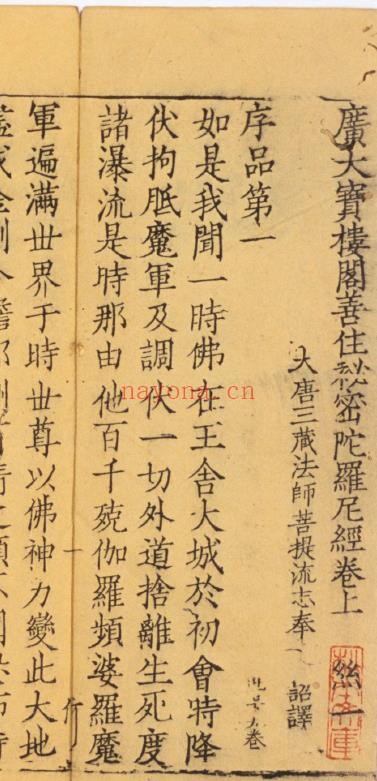 廣大寶樓閣善住秘密陀羅尼經卷上 絲一
大唐三藏法師菩提流志奉 詔譯
序品第一
如是我聞一時佛在王舍大城於初會時降
伏拘胝魔軍及調伏一切外道捨離生死度
諸瀑流是時那由他百千殑伽羅頻婆羅魔
軍遍滿世界于時世尊以佛神力變此大地
nayona.cn